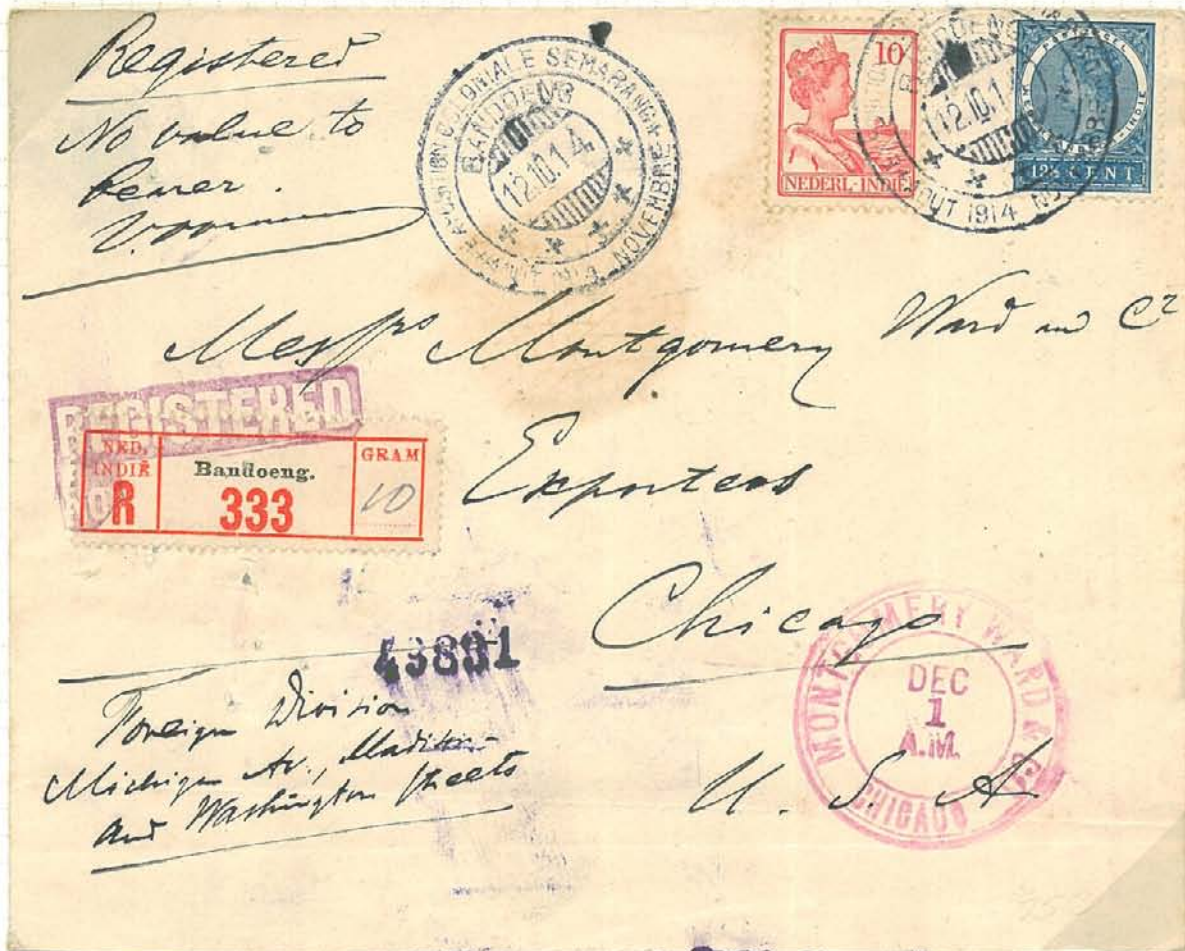 Registered
No value to
bearer.
EXPOSITION COLONIALE SEMARANG
BANDOENG
12.10.14
NOVEMBRE
10
NEDERL-INDIE
BANDOENG
12.10.1
AOUT 1914 NO
POSTZEGEL
INDIE
12½ CENT
Messrs Montgomery Ward and Co
Exporters
Chicago
U. S. A
REGISTERED
NED.
INDIË
R
Bandoeng.
333
GRAM
10
49891
Foreign Division
Michigan Av., Madison
and Washington Streets
MONTGOMERY WARD & CO
DEC
1
A.M.
CHICAGO